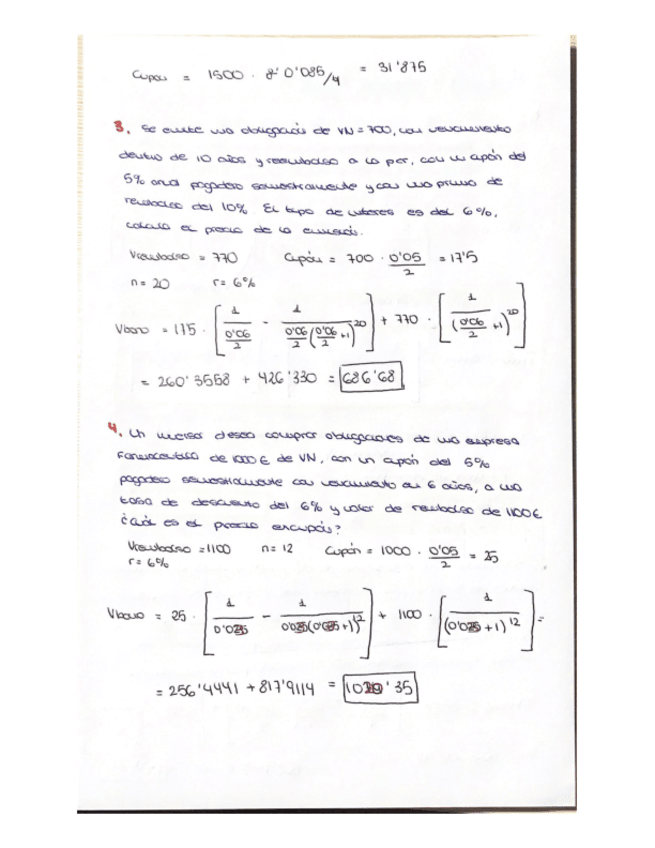 Cupón = 1500 · 8' 0'085/4 = 31'875
3. Se emite una obligación de VN = 700, con vencimiento
dentro de 10 años y reembolso a la par, con un cupón del
5% anual pagadero semestralmente y con una prima de
reembolso del 10%. El tipo de interés es del 6%,
calcula el precio de la emisión.
Vreembolso = 770 Cupón = 700 · 0'05/2 = 17'5
n = 20 r = 6%
Vbono = 175 · [1/(0'06/2) - 1/(0'06/2 (0'06/2 + 1)^20)] + 770 · [1/(0'06/2 + 1)^20]
= 260'3558 + 426'330 = 686'68
4. Un inversor desea comprar obligaciones de una empresa
farmacéutica de 1000 € de VN, con un cupón del 5%
pagadero semestralmente con vencimiento en 6 años, a una
tasa de descuento del 6% y valor de reembolso de 1100 €
¿Cuál es el precio excupón?
Vreembolso = 1100 n = 12 Cupón = 1000 · 0'05/2 = 25
r = 6%
Vbono = 25 · [1/0'025 - 1/(0'025(0'025+1)^12)] + 1100 · [1/(0'025+1)^12] =
= 256'4441 + 817'9114 = 35